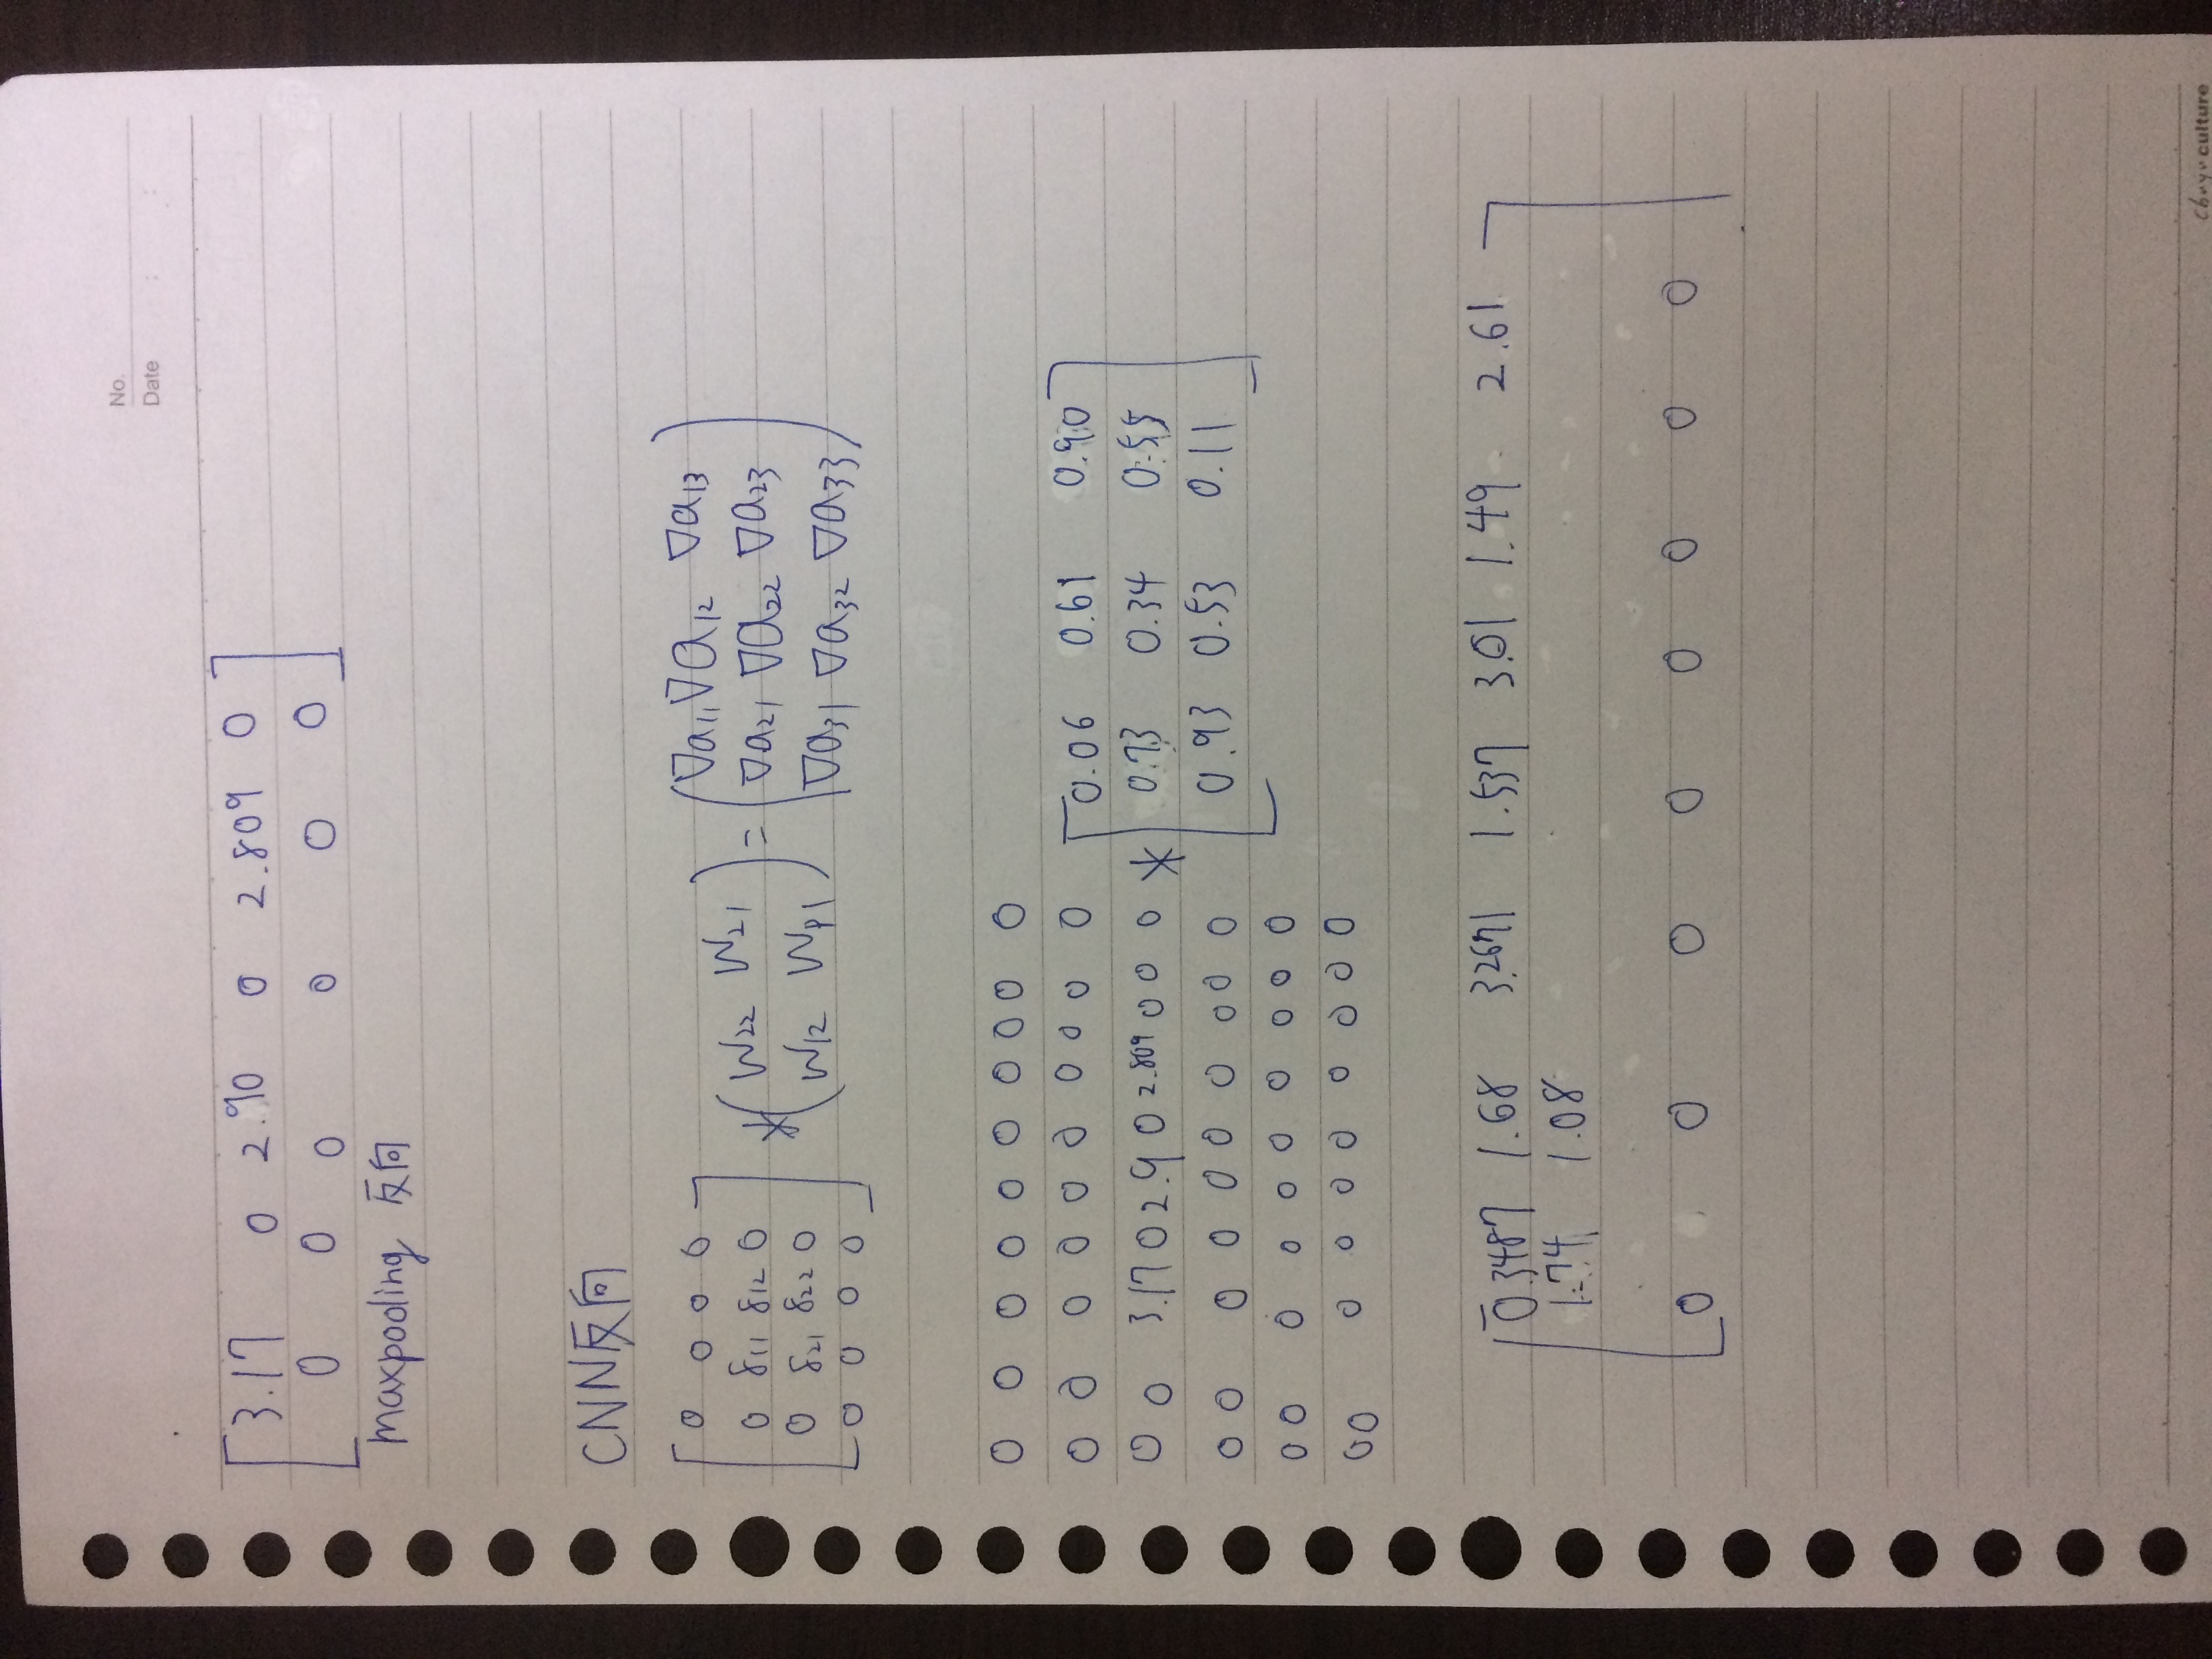 No.
Date : :
3.17 0 2.90 0 2.809 0
0 0 0 0 0 0
maxpooling 反向
CNN反向
0 0 0 0
0 δ11 δ12 0
0 δ21 δ22 0
0 0 0 0
* W22 W21
W12 W11
= ∇a11 ∇a12 ∇a13
∇a21 ∇a22 ∇a23
∇a31 ∇a32 ∇a33
0 0 0 0 0 0 0 0 0 0
0 0 0 0 0 0 0 0 0 0
0 0 3.17 0 2.9 0 2.809 0 0 0
0 0 0 0 0 0 0 0 0 0
0 0 0 0 0 0 0 0 0 0
0 0 0 0 0 0 0 0 0 0
* 0.06 0.61 0.90
0.73 0.34 0.55
0.93 0.53 0.11
0.3487 1.68 3.2671 1.537 3.01 1.49 2.61
1.74 1.08
0 0 0 0 0 0 0 0
culture